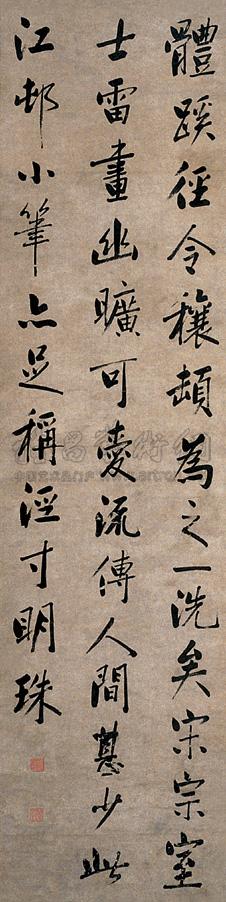 體蹊徑令穰頓為之一洗矣宋宗室
士雷畫幽曠可愛流傳人間甚少此
江邨小筆亦足稱徑寸明珠